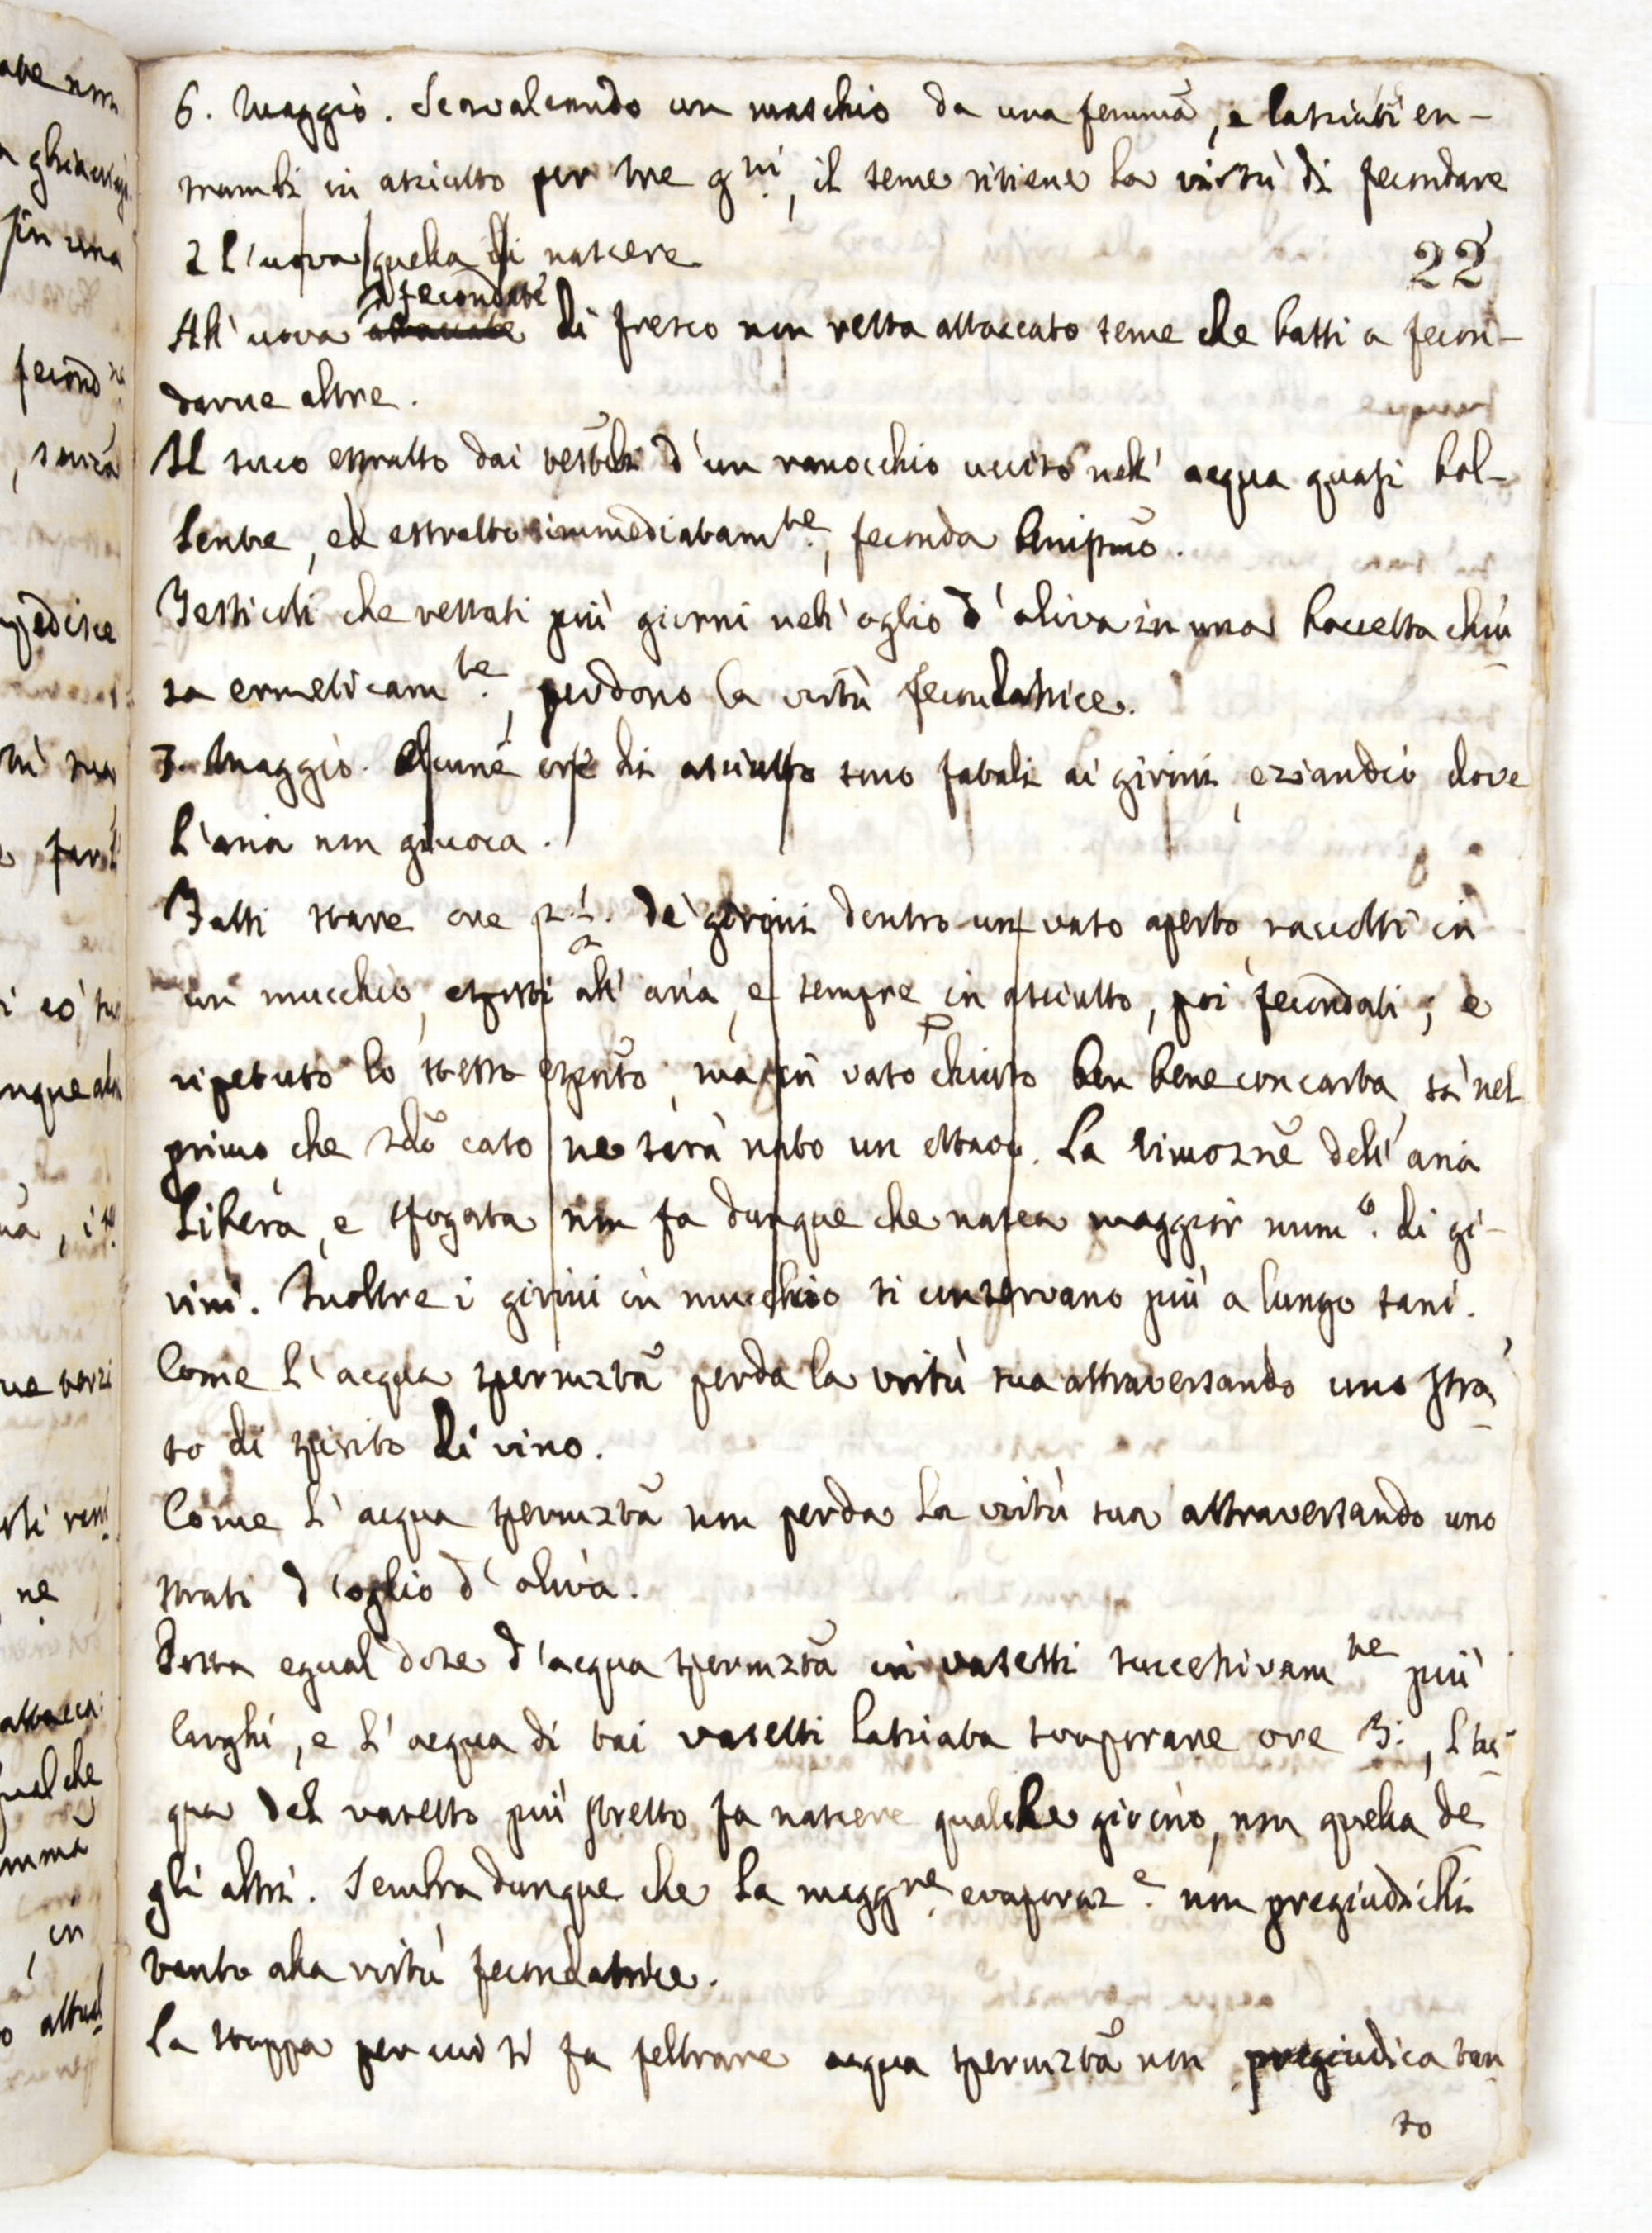 6. Maggio. Scavalcando un maschio da una femmã, e lasciati en-
trambi in asciutto per tre g.ni, il seme ritiene la virtù di fecondare
22
e l'uova quella di nascere
fecondate
All'uova attaccate di fresco non resta attaccato seme che basti a fecon-
darne altre.
Il suco estratto dai testĩcli d'un ranocchio ucciso nell'acqua quasi bol-
lente, ed estratto immediatam.te, feconda beniss̃mo.
Testicoli che restati più giorni nell'oglio d'oliva in una boccetta chiu
sa ermeticam.te, perdono la virtù fecondatrice.
7. Maggio. Alcune ore di asciutto sono fatali ai girini, eziandio dove
l'aria non giuoca.
Fatti stare ore 2.1/2. de' girini dentro un vaso aperto, raccolti in
un mucchio, esposti all'aria, e sempre in asciutto, poi fecondati; e
ripetuto lo stesso esper̃to, ma in vaso chiuso ben bene con carta, sì nel
primo, che 2dõ caso ne sarà nato un ottavo. La rimoznẽ dell'aria
libera, e sfogata non fa dunque che nasca maggior num.o di gi-
rini. Inoltre i girini in mucchio si conservano più a lungo sani.
Come l'acqua spermztã perda la virtù sua attraversando uno stra
to di spirito di vino.
Come l'acqua spermztã non perda la virtù sua attraversando uno
strati d'oglio d'oliva.
Posta egual dose d'acqua spermztã in vasetti successivam.te più
larghi, e l'acqua di tai vasetti lasciata svaporare ore 3:, l'ac
qua del vasetto più stretto fa nascere qualche girino, non quella de
gli altri. Sembra dunque che la magg.re evaporaz.e non pregiudichi
tanto alla virtù fecondatrice.
La stoppa per cui si fa feltrare acqua spermztã non pregiudica tan
to